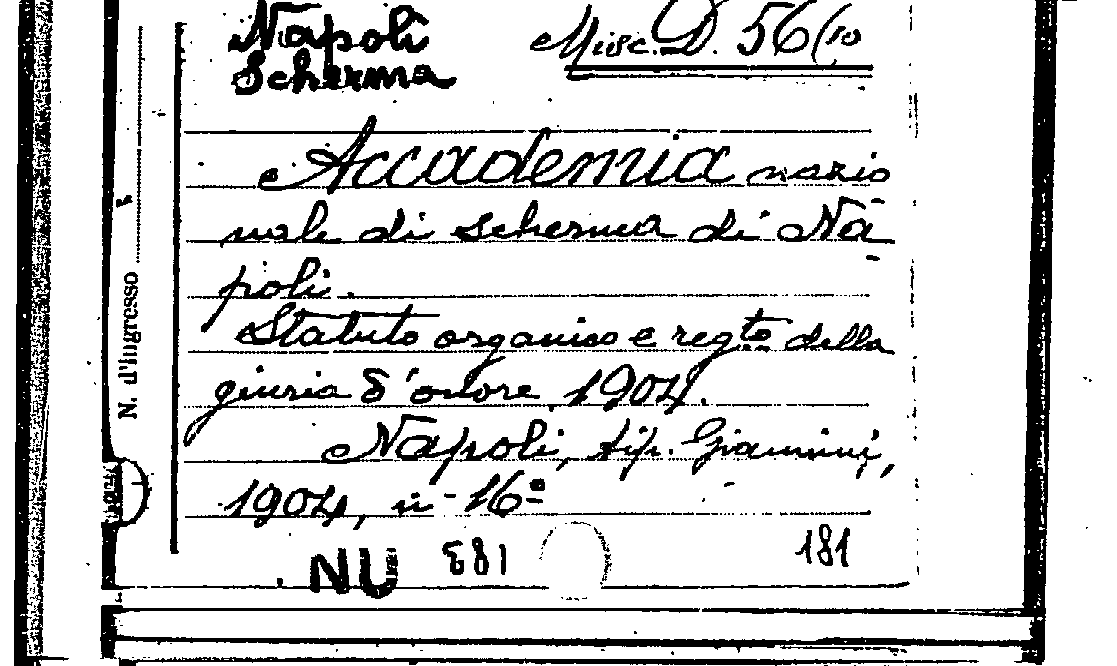 Napoli
Scherma
Misc. D. 56(10
Accademia nazio
nale di scherma di Na-
poli.
Statuto organico e regto della
giuria d'onore. 1904.
Napoli, tip. Giannini,
1904, in-16º
N. d'ingresso
NU 183 181